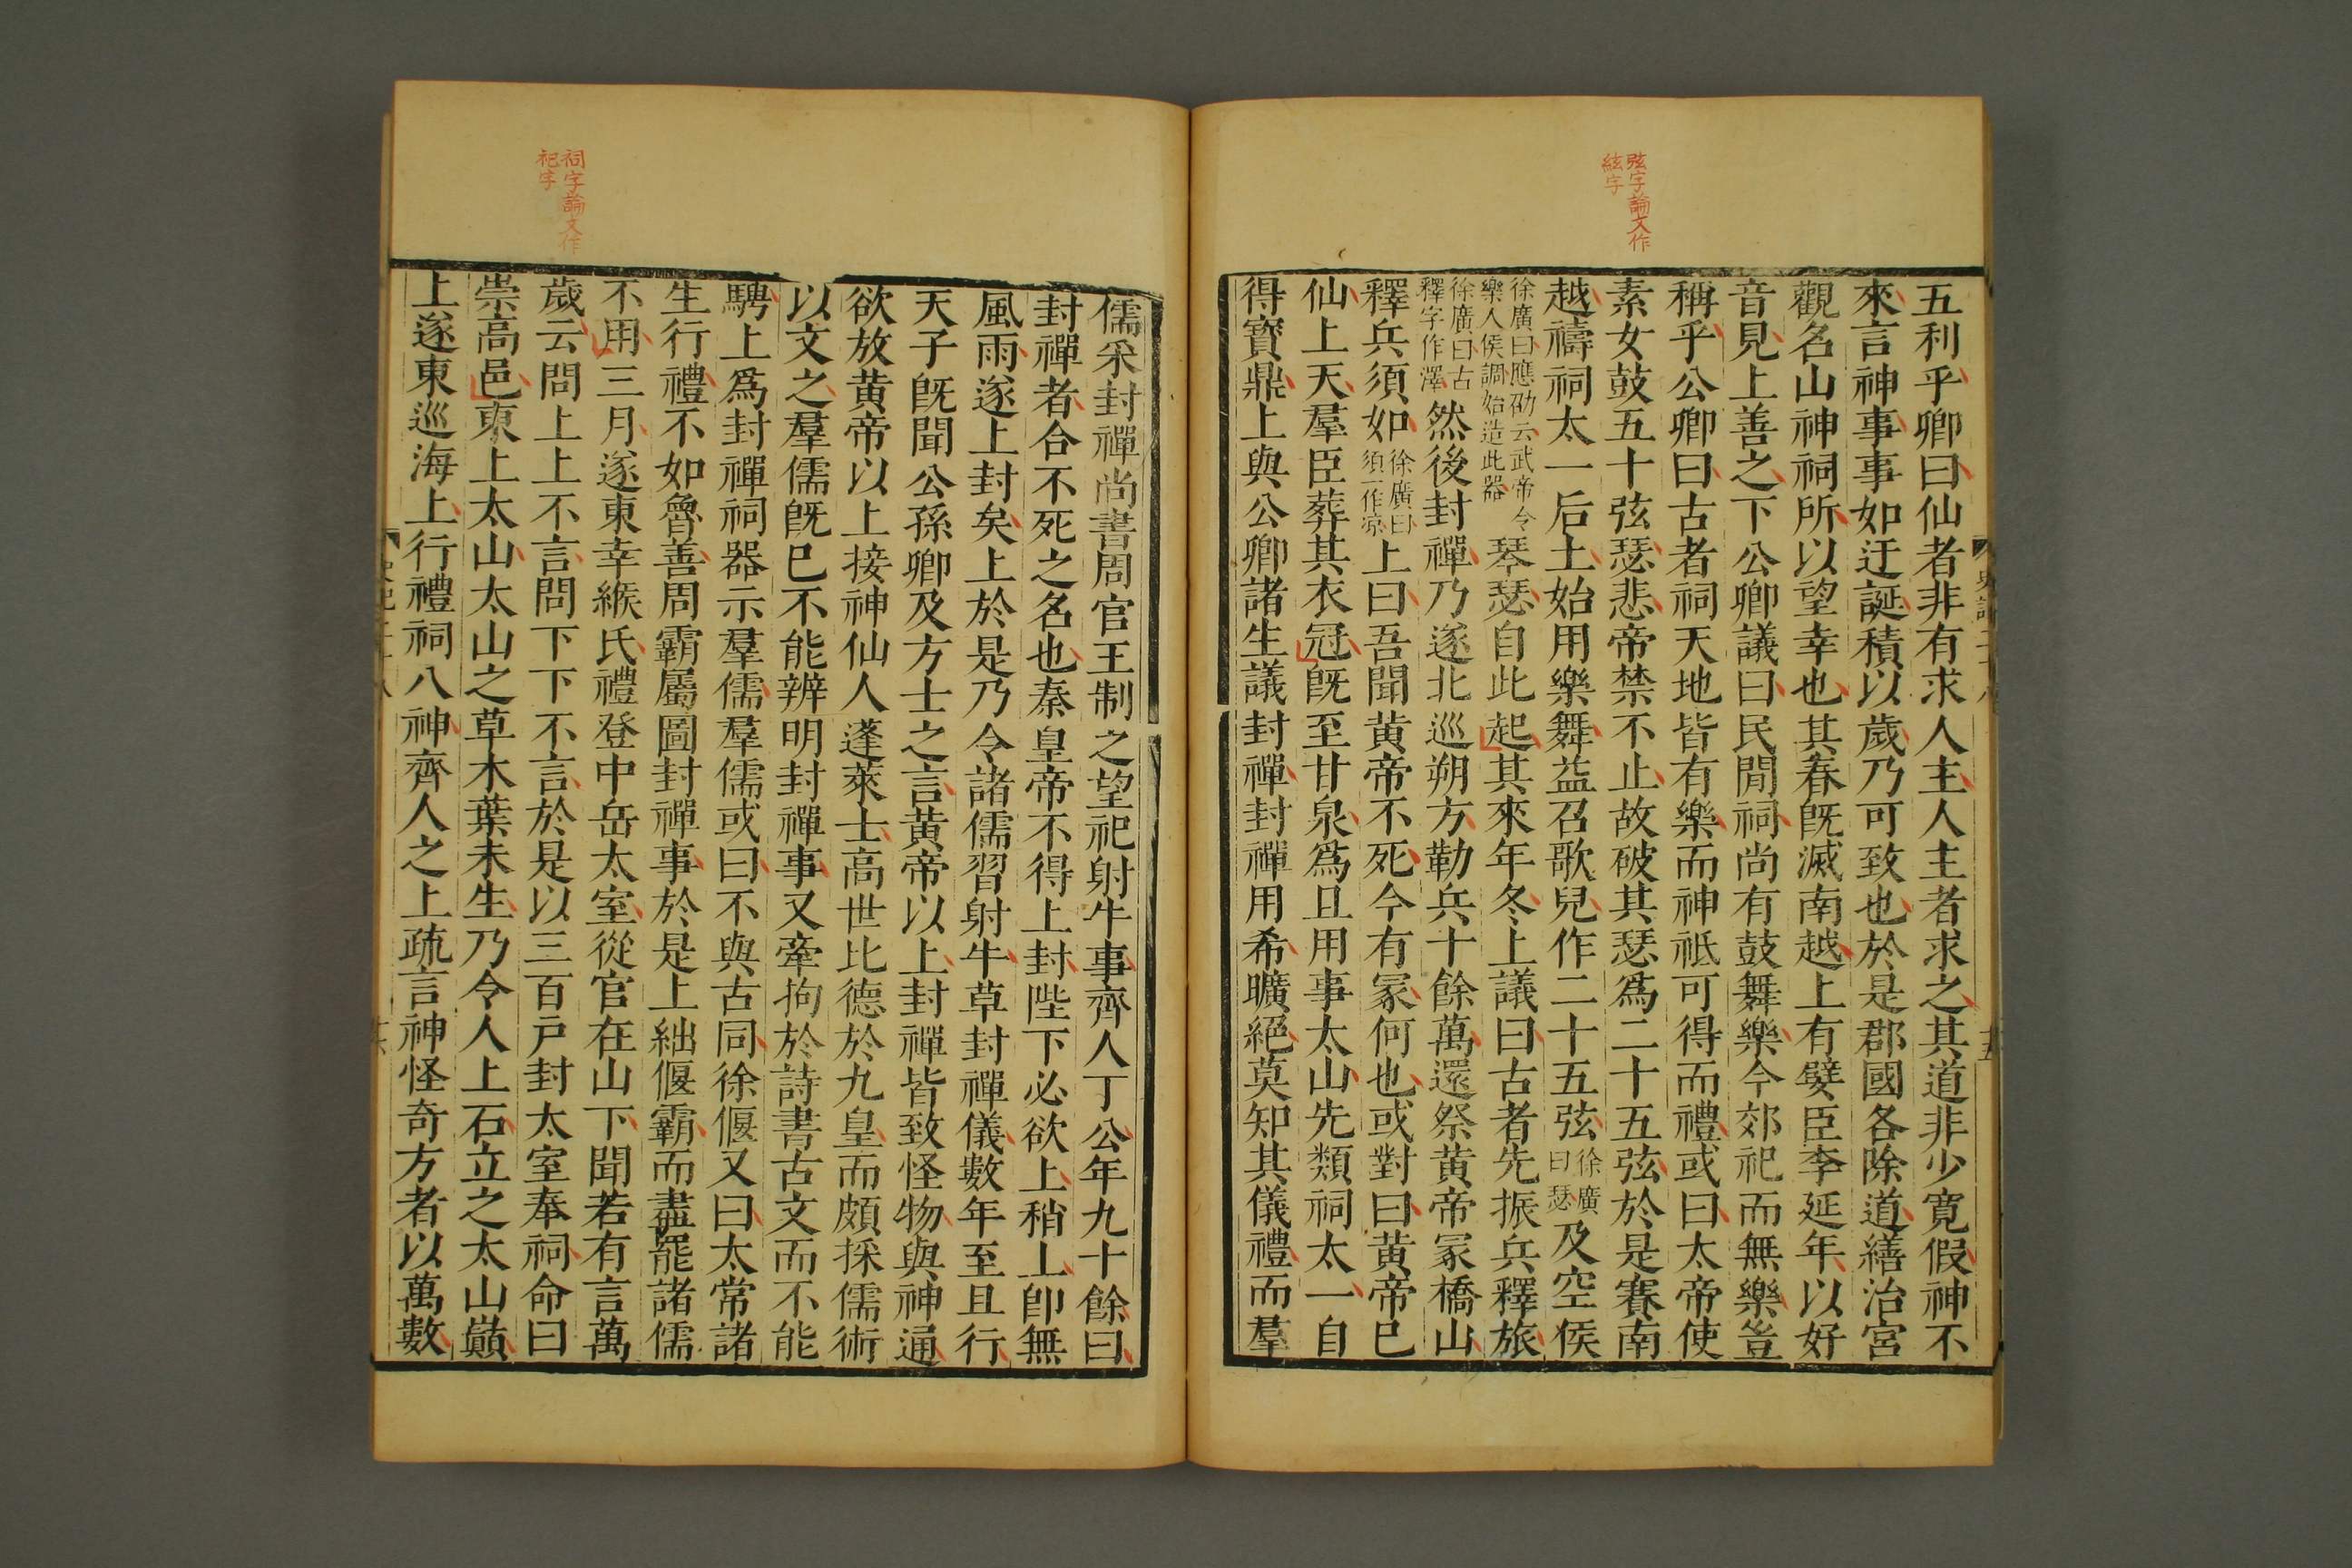 弦字論文作
絃字
五利乎卿曰仙者非有求人主人主者求之其道非少寬假神不
來言神事事如迂誕積以歲乃可致也於是郡國各除道繕治宮
觀名山神祠所以望幸也其春既滅南越上有嬖臣李延年以好
音見上善之下公卿議曰民閒祠尚有鼓舞樂今郊祀而無樂豈
稱乎公卿曰古者祠天地皆有樂而神祗可得而禮或曰太帝使
素女鼓五十弦瑟悲帝禁不止故破其瑟爲二十五弦於是賽南
越禱祠太一后土始用樂舞益召歌兒作二十五弦徐廣曰瑟及空侯
徐廣曰應劭云武帝令樂人侯調始造此器琴瑟自此起其來年冬上議曰古者先振兵釋旅
徐廣曰古釋字作澤然後封禪乃遂北巡朔方勒兵十餘萬還祭黃帝冢橋山
釋兵須如徐廣曰須一作涼上曰吾聞黃帝不死今有冢何也或對曰黃帝已
仙上天羣臣葬其衣冠既至甘泉爲且用事太山先類祠太一自
得寶鼎上與公卿諸生議封禪封禪用希曠絕莫知其儀禮而羣
祠字論文作
祀字
儒采封禪尚書周官王制之望祀射牛事齊人丁公年九十餘曰
封禪者合不死之名也秦皇帝不得上封陛下必欲上稍上卽無
風雨遂上封矣上於是乃令諸儒習射牛草封禪儀數年至且行
天子既聞公孫卿及方士之言黃帝以上封禪皆致怪物與神通
欲放黃帝以上接神仙人蓬萊士高世比德於九皇而頗採儒術
以文之羣儒既已不能辨明封禪事又牽拘於詩書古文而不能
騁上爲封禪祠器示羣儒羣儒或曰不與古同徐偃又曰太常諸
生行禮不如魯善周霸屬圖封禪事於是上絀偃霸而盡罷諸儒
不用三月遂東幸緱氏禮登中岳太室從官在山下聞若有言萬
歲云問上上不言問下下不言於是以三百戶封太室奉祠命曰
崇高邑東上太山太山之草木葉未生乃令人上石立之太山巔
上遂東巡海上行禮祠八神齊人之上疏言神怪奇方者以萬數